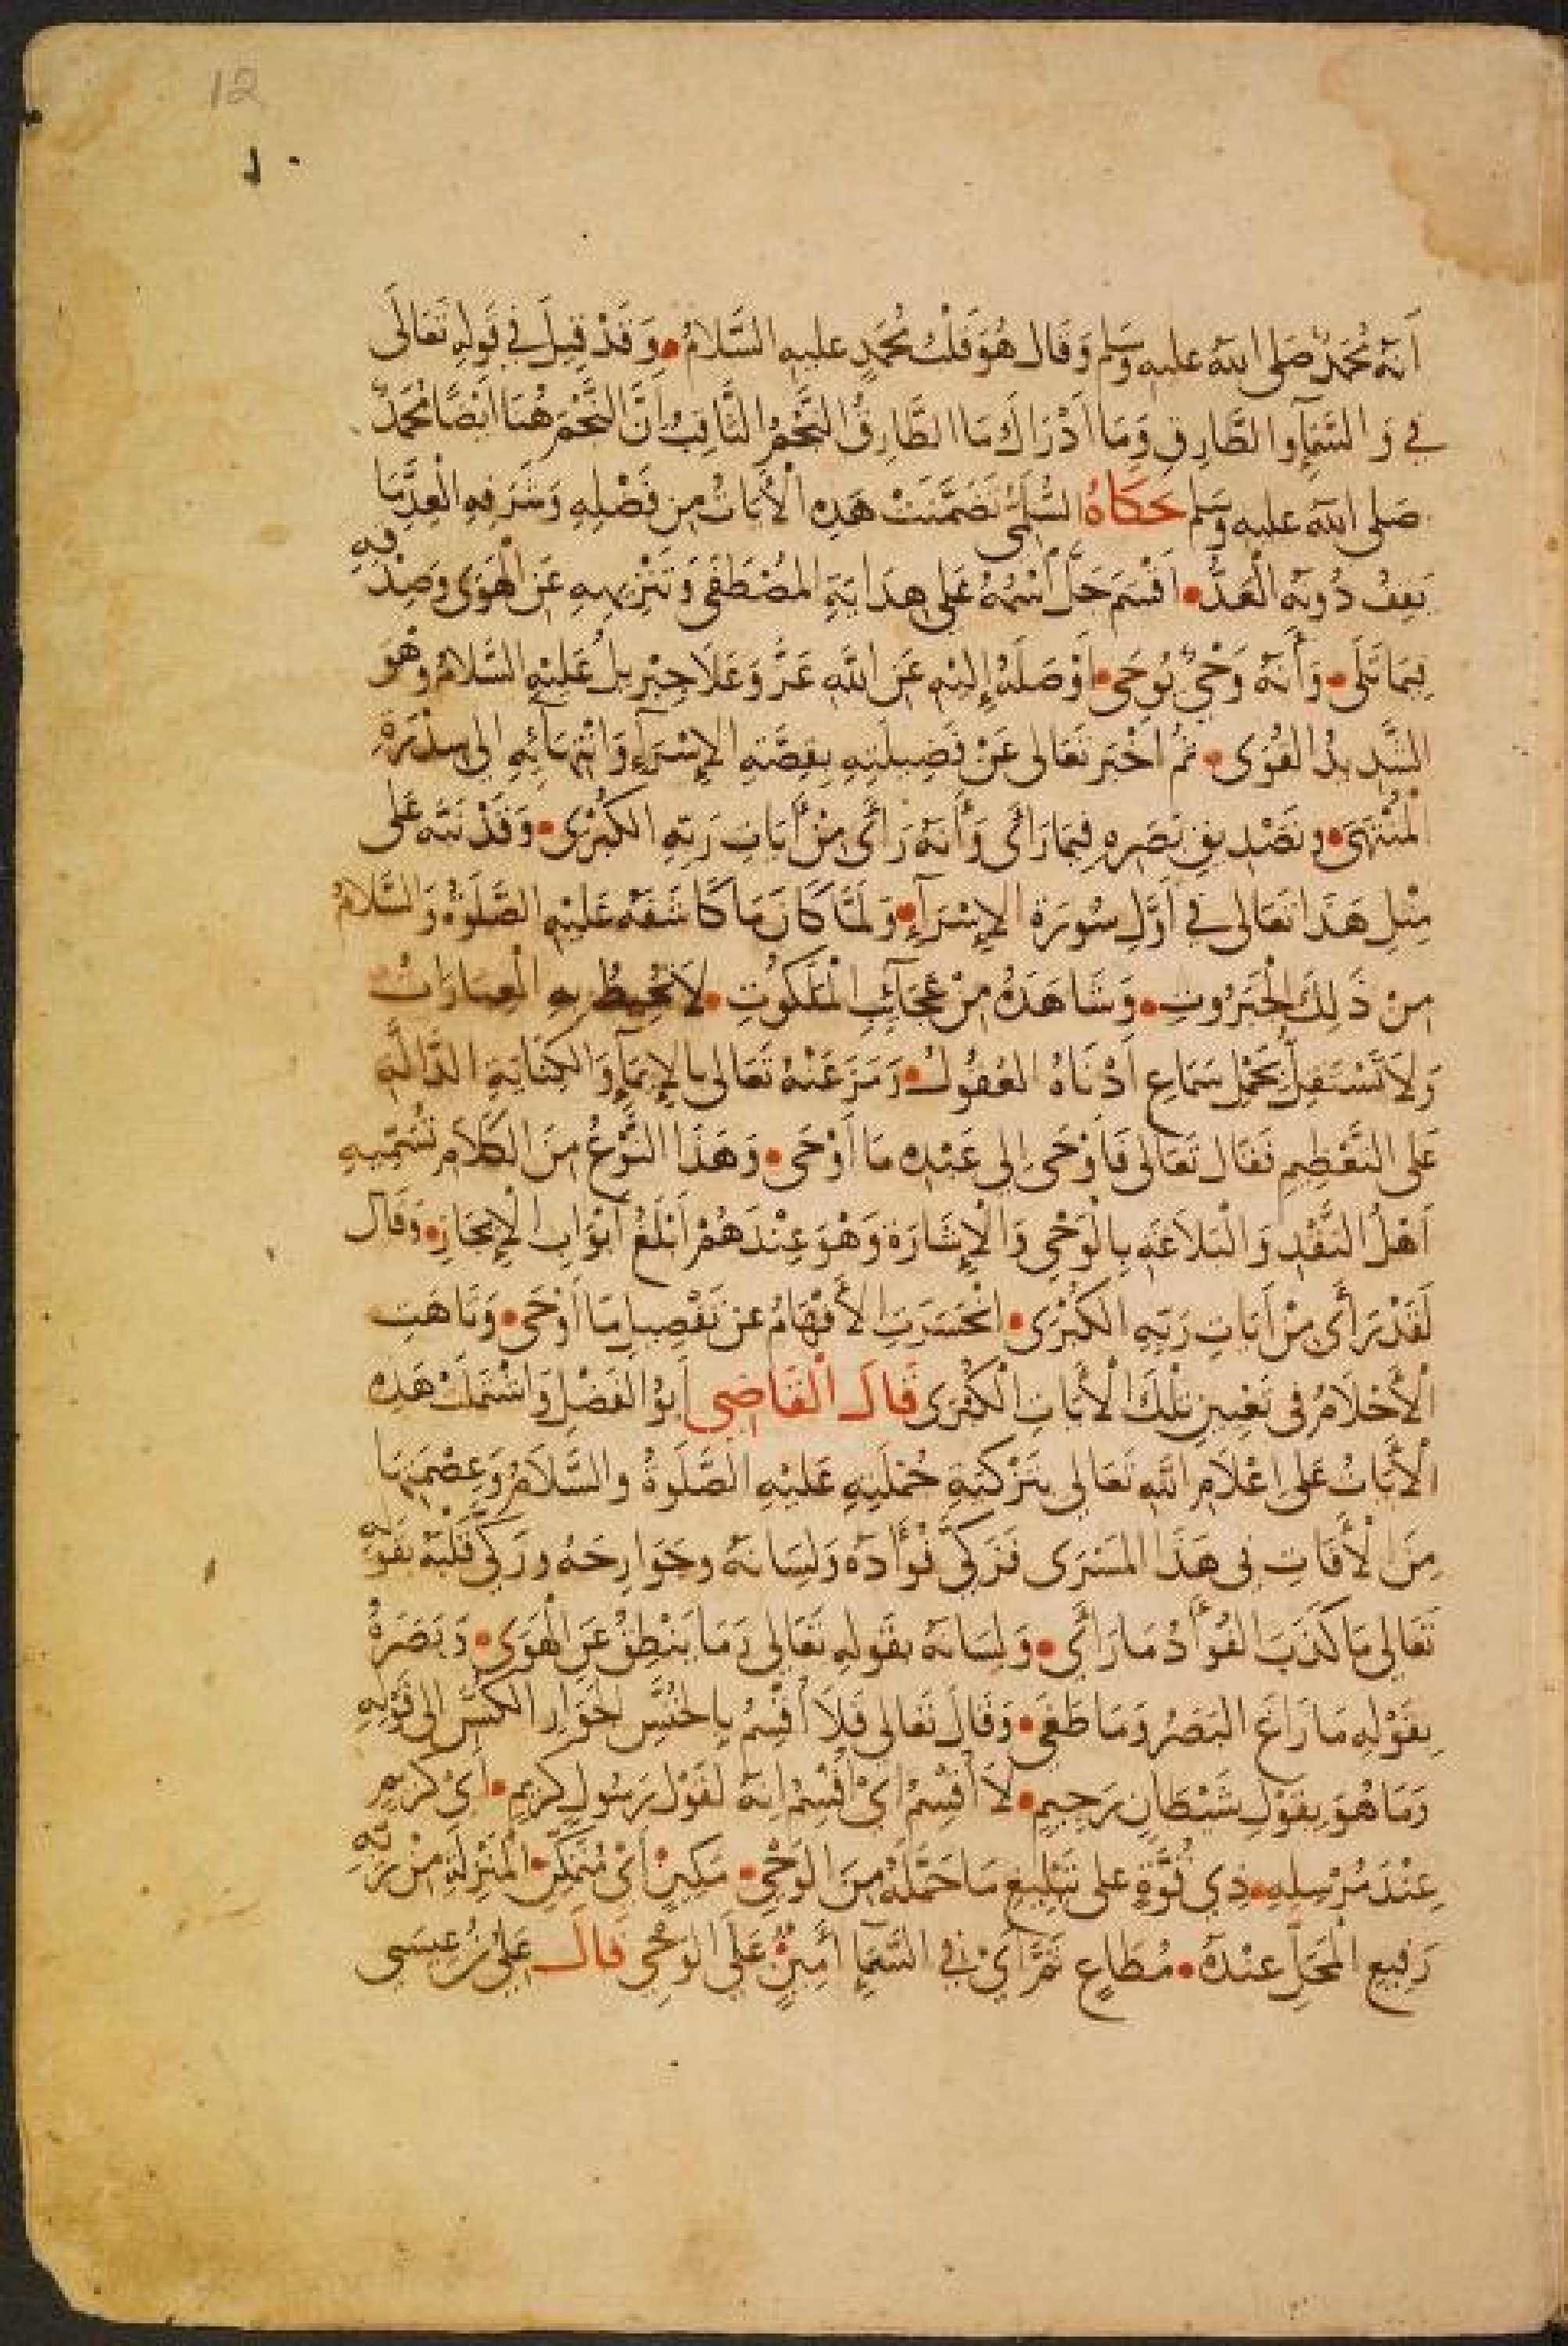 12
أَنَّهُ مُحَمَّدٌ صَلى اللهُ عليه وسَلم وَقَال هُوَ قَلْبُ مُحَمَّدٍ عليهِ السَّلامُ • وَقَدْ قِيلَ في قَولِهِ تَعَالَى
في وَالسَّمَآءِ والطَّارِقِ وَمَا أَدْرَاكَ مَا الطَّارِقُ النَّجْمُ الثَّاقِبُ أَنَّ النَّجْمَ هُنَا أَيْضًا مُحَمَّدٌ
صَلى الله عليه وسَلم حَكَاهُ السُّلَمِيُّ تَضَمَّنَتْ هَذِهِ الْأَيَاتُ مِن فَضْلِهِ وَشَرَفِهِ الْعِدِّ مَا
يَقِفُ دُونَهُ الْعَدُّ • أَقْسَمَ جَلَّ اسْمُهُ عَلى هِدَايَةِ المُصْطَفَى وَتَنْزِيهِهِ عَنِ الْهَوَى وَصِدْقِهِ
فِيمَا تَلَى • وَأَنَّهُ وَحْيٌ يُوحَى • أَوْصَلَهُ إِلَيْهِ عَنِ اللَّهِ عَزَّ وَعَلَا جِبْرِيلُ عَلَيْهِ السَّلَامُ وهُوَ
الشَّدِيدُ القُوَى • ثُمَّ أَخْبَرَ تَعَالى عَنْ فَضِيلَتِهِ بِقِصَّةِ الإِسْرَآءِ وَانْتِهَائِهِ إلى سِدْرَةِ
الْمُنْتَهَى • وتَصْدِيقِ بَصَرِهِ فِيمَا رَأَى وَأَنَّهُ رَأَى مِنْ أَيَاتِ رَبِّهِ الكُبْرَى • وَقَدْ نَبَّهَ عَلى
مِثْلِ هَذَا تَعَالى في أَوَّلِ سُورَةِ الإِسْرَآءِ • وَلَمَّا كَانَ مَا كَاشَفَهُ عَلَيْهِ الصَّلَوةُ وَالسَّلَامُ
مِنْ ذَلِكَ الْجَبَرُوتِ • وَشَاهَدَهُ مِنْ عَجَآئِبِ الْمَلَكُوتِ • لَا تُحِيطُ بِهِ الْعِبَارَاتُ
وَلَا تَسْتَقِلُّ بِحَمْلِ سَمَاعِ أَدْنَاهُ العُقُولُ • رَمَزَ عَنْهُ تَعَالى بِالإِيمَآءِ وَالكِنَايَةِ الدَّالَّةِ
عَلى التَّعْظِيمِ فَقَال تَعَالى فَأَوْحَى إلى عَبْدِهِ مَا أَوْحَى • وَهَذَا النَّوْعُ مِنَ الكَلَامِ تُسَمِّيهِ
أَهْلُ النَّقْدِ وَالْبَلَاغَةِ بِالْوَحْيِ وَالْإِشَارَةِ وَهْوَ عِنْدَهُمْ أَبْلَغُ أَبْوَابِ الْإِيجَازِ • وَقَال
لَقَدْ رَأَى مِنْ أَيَاتِ رَبِّهِ الكُبْرَى • انْحَسَرَتِ الأَفْهَامُ عن تَفْصِيلِ مَا أَوْحَى • وَتَاهَتِ
الْأَحْلَامُ فى تَعْيِينِ تِلْكَ الْأَيَاتِ الْكُبْرَى قَالَ الْقَاضِي أَبُو الفَضْلِ وَاشْتَمَلَتْ هَذِهِ
الْأَيَاتُ عَلى اعْلَامِ اللهِ تَعَالى بِتَزْكِيَةِ جُمْلَتِهِ عَلَيْهِ الصَّلَوةُ والسَّلَامُ وَعِصْمَتِهَا
مِنَ الْأَفَاتِ فى هَذَا المَسْرَى فَزَكَّى فُؤَادَهُ وَلِسَانَهُ وجَوَارِحَهُ وزَكَّى قَلْبَهُ بِقَوْلِهِ
تَعَالى مَا كَذَبَ الفُؤَادُ مَا رَأَى • وَلِسَانَهُ بقَولِهِ تَعَالى وَمَا يَنْطِقُ عَنِ الْهَوَى • وَبَصَرَهُ
بِقَوْلِهِ مَا زَاغَ البَصَرُ وَمَا طَغَى • وَقَالَ تَعَالى فَلَا أُقْسِمُ بِالْخُنَّسِ الْجَوَارِ الكُنَّسِ إلى قَوْلِهِ
وَمَا هُوَ بِقَوْلِ شَيْطَانٍ رَجِيمٍ • لَا أُقْسِمُ أَيْ أُقْسِمُ إِنَّهُ لَقَوْلُ رَسُولٍ كَرِيمٍ • أَيْ كَرِيمٍ
عِنْدَ مُرْسِلِهِ • ذِي قُوَّةٍ على تَبْلِيغِ مَا حَمَّلَهُ مِنَ الوَحْيِ • مَكِينٍ أَيْ مُتَمَكِّنِ • الْمَنْزِلَةِ مِنْ رَبِّهِ
رَفِيعِ الْمَحَلِّ عِنْدَهُ • مُطَاعٍ ثَمَّ أَيْ فِي السَّمَآءِ أَمِينٍ عَلَى الوَحْيِ قالَ عَلِيُّ بْنُ عِيسَى